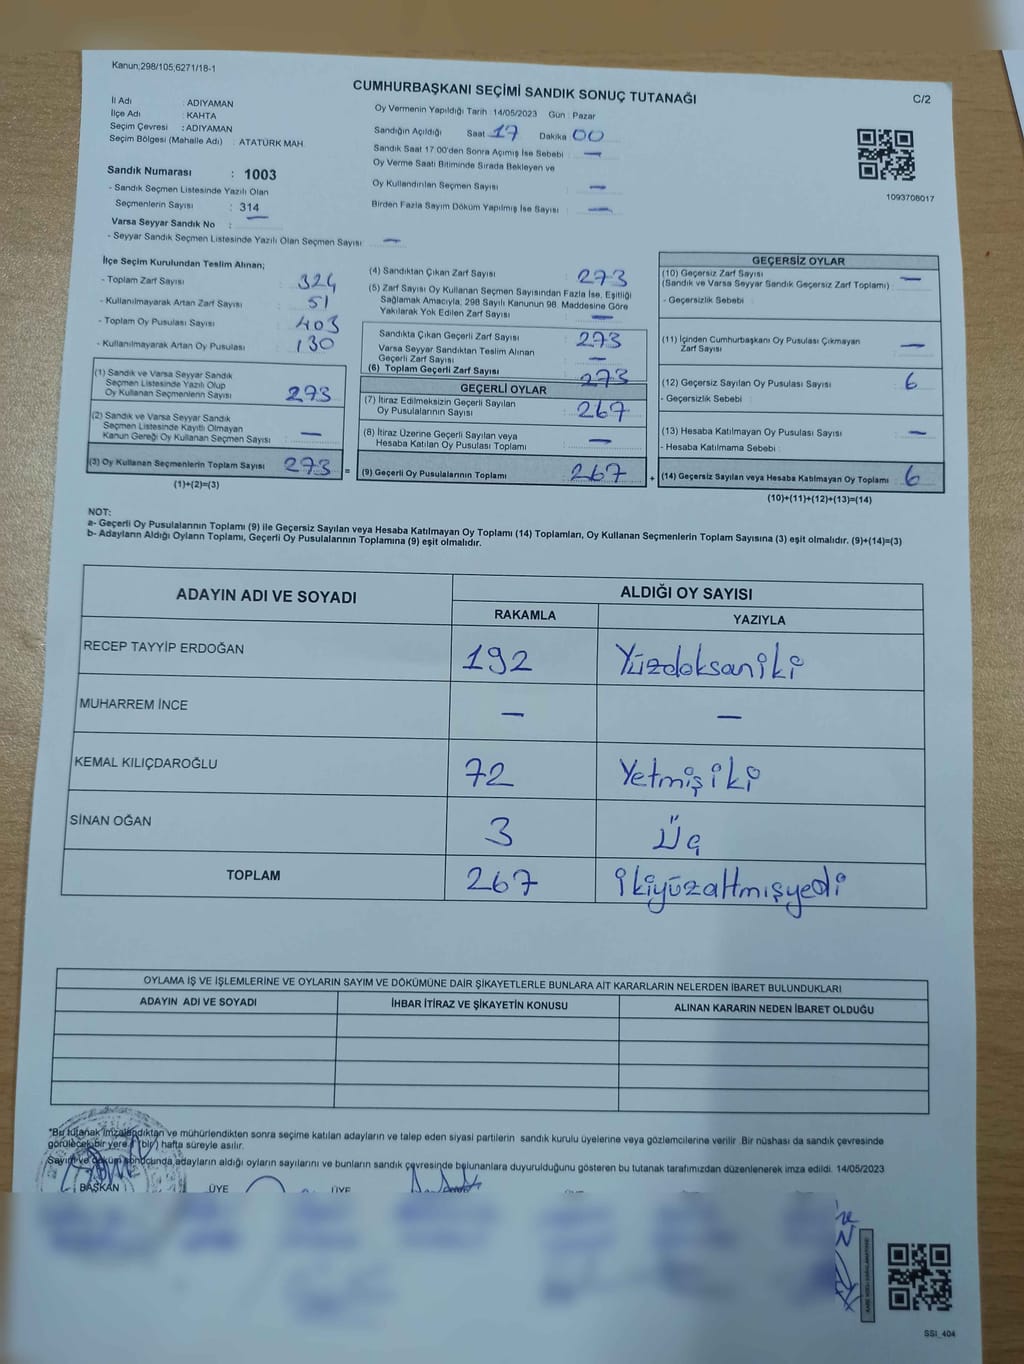 Kanun;298/105,6271/18-1
CUMHURBAŞKANI SEÇİMİ SANDIK SONUÇ TUTANAĞI
C/2
İl Adı : ADIYAMAN
İlçe Adı : KAHTA
Seçim Çevresi : ADIYAMAN
Seçim Bölgesi (Mahalle Adı) : ATATÜRK MAH.
Sandık Numarası : 1003
- Sandık Seçmen Listesinde Yazılı Olan
Seçmenlerin Sayısı : 314
Varsa Seyyar Sandık No :
- Seyyar Sandık Seçmen Listesinde Yazılı Olan Seçmen Sayısı : —
Oy Vermenin Yapıldığı Tarih : 14/05/2023 Gün : Pazar
Sandığın Açıldığı Saat 17 Dakika 00
Sandık Saat 17:00'den Sonra Açımış İse Sebebi : —
Oy Verme Saati Bitiminde Sırada Bekleyen ve
Oy Kullandırılan Seçmen Sayısı : —
Birden Fazla Sayım Döküm Yapılmış İse Sayısı : —
1093708017
İlçe Seçim Kurulundan Teslim Alınan;
- Toplam Zarf Sayısı : 324
- Kullanılmayarak Artan Zarf Sayısı : 51
- Toplam Oy Pusulası Sayısı : 403
- Kullanılmayarak Artan Oy Pusulası : 130
(1) Sandık ve Varsa Seyyar Sandık
Seçmen Listesinde Yazılı Olup
Oy Kullanan Seçmenlerin Sayısı : 273
(2) Sandık ve Varsa Seyyar Sandık
Seçmen Listesinde Kayıtlı Olmayan
Kanun Gereği Oy Kullanan Seçmen Sayısı : —
(3) Oy Kullanan Seçmenlerin Toplam Sayısı : 273
(1)+(2)=(3)
=
(4) Sandıktan Çıkan Zarf Sayısı : 273
(5) Zarf Sayısı Oy Kullanan Seçmen Sayısından Fazla İse, Eşitliği
Sağlamak Amacıyla, 298 Sayılı Kanunun 98. Maddesine Göre
Yakılarak Yok Edilen Zarf Sayısı : —
Sandıkta Çıkan Geçerli Zarf Sayısı : 273
Varsa Seyyar Sandıktan Teslim Alınan
Geçerli Zarf Sayısı : —
(6) Toplam Geçerli Zarf Sayısı : 273
GEÇERLİ OYLAR
(7) İtiraz Edilmeksizin Geçerli Sayılan
Oy Pusulalarının Sayısı : 267
(8) İtiraz Üzerine Geçerli Sayılan veya
Hesaba Katılan Oy Pusulası Toplamı : —
(9) Geçerli Oy Pusulalarının Toplamı : 267
+
GEÇERSİZ OYLAR
(10) Geçersiz Zarf Sayısı
(Sandık ve Varsa Seyyar Sandık Geçersiz Zarf Toplamı) : —
- Geçersizlik Sebebi :
(11) İçinden Cumhurbaşkanı Oy Pusulası Çıkmayan
Zarf Sayısı : —
(12) Geçersiz Sayılan Oy Pusulası Sayısı : 6
- Geçersizlik Sebebi :
(13) Hesaba Katılmayan Oy Pusulası Sayısı : —
- Hesaba Katılmama Sebebi :
(14) Geçersiz Sayılan veya Hesaba Katılmayan Oy Toplamı : 6
(10)+(11)+(12)+(13)=(14)
NOT:
a- Geçerli Oy Pusulalarının Toplamı (9) ile Geçersiz Sayılan veya Hesaba Katılmayan Oy Toplamı (14) Toplamları, Oy Kullanan Seçmenlerin Toplam Sayısına (3) eşit olmalıdır. (9)+(14)=(3)
b- Adayların Aldığı Oyların Toplamı, Geçerli Oy Pusulalarının Toplamına (9) eşit olmalıdır.
ADAYIN ADI VE SOYADI
ALDIĞI OY SAYISI
RAKAMLA YAZIYLA
RECEP TAYYİP ERDOĞAN 192 Yüzdoksaniki
MUHARREM İNCE — —
KEMAL KILIÇDAROĞLU 72 Yetmişiki
SİNAN OĞAN 3 Üç
TOPLAM 267 ikiyüzaltmışyedi
OYLAMA İŞ VE İŞLEMLERİNE VE OYLARIN SAYIM VE DÖKÜMÜNE DAİR ŞİKAYETLERLE BUNLARA AİT KARARLARIN NELERDEN İBARET BULUNDUKLARI
ADAYIN ADI VE SOYADI İHBAR İTİRAZ VE ŞİKAYETİN KONUSU ALINAN KARARIN NEDEN İBARET OLDUĞU
*Bu tutanak imzalandıktan ve mühürlendikten sonra seçime katılan adayların ve talep eden siyasi partilerin sandık kurulu üyelerine veya gözlemcilerine verilir .Bir nüshası da sandık çevresinde
görülecek bir yere 1 (bir) hafta süreyle asılır.
Sayım ve döküm sonucunda adayların aldığı oyların sayılarını ve bunların sandık çevresinde bulunanlara duyurulduğunu gösteren bu tutanak tarafımızdan düzenlenerek imza edildi. 14/05/2023
BAŞKAN ÜYE ÜYE
SSI_404